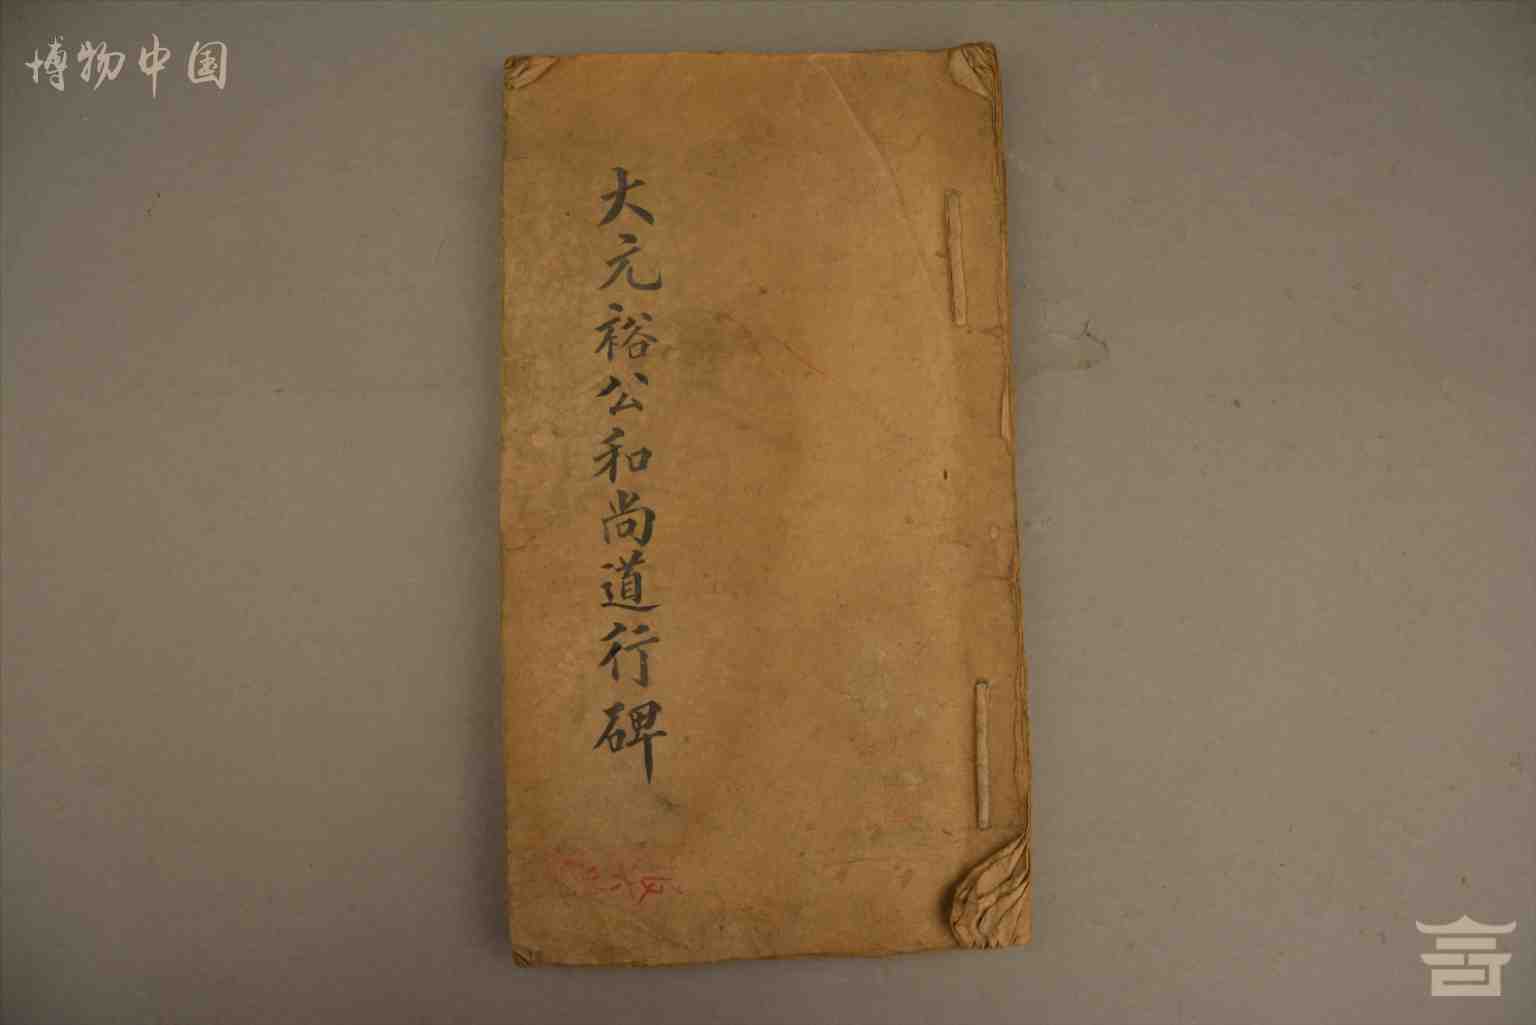 博物中国
大元裕公和尚道行碑